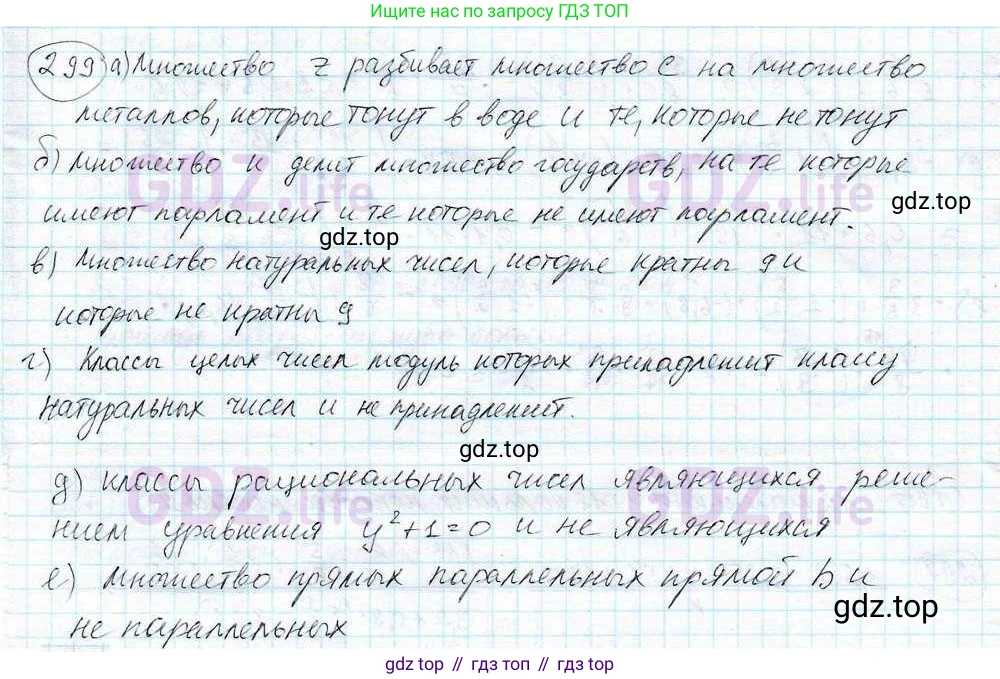 Ищите нас по запросу ГДЗ ТОП
299 а) Множество Z разбивает множество C на множество
металлов, которые тонут в воде и те, которые не тонут
б) Множество K делит множество государств, на те которые
имеют парламент и те которые не имеют парламент.
gdz.top
gdz.top
в) Множество натуральных чисел, которые кратны 9 и
которые не кратны 9
г) Классы целых чисел модуль которых принадлежит классу
натуральных чисел и не принадлежит.
gdz.top
д) классы рациональных чисел являющихся реше-
нием уравнения y²+1=0 и не являющихся
е) множество прямых параллельных прямой b и
gdz.top
не параллельных
GDZ.life GDZ.life
GDZ.life GDZ.life
gdz.top // гдз топ // gdz.top